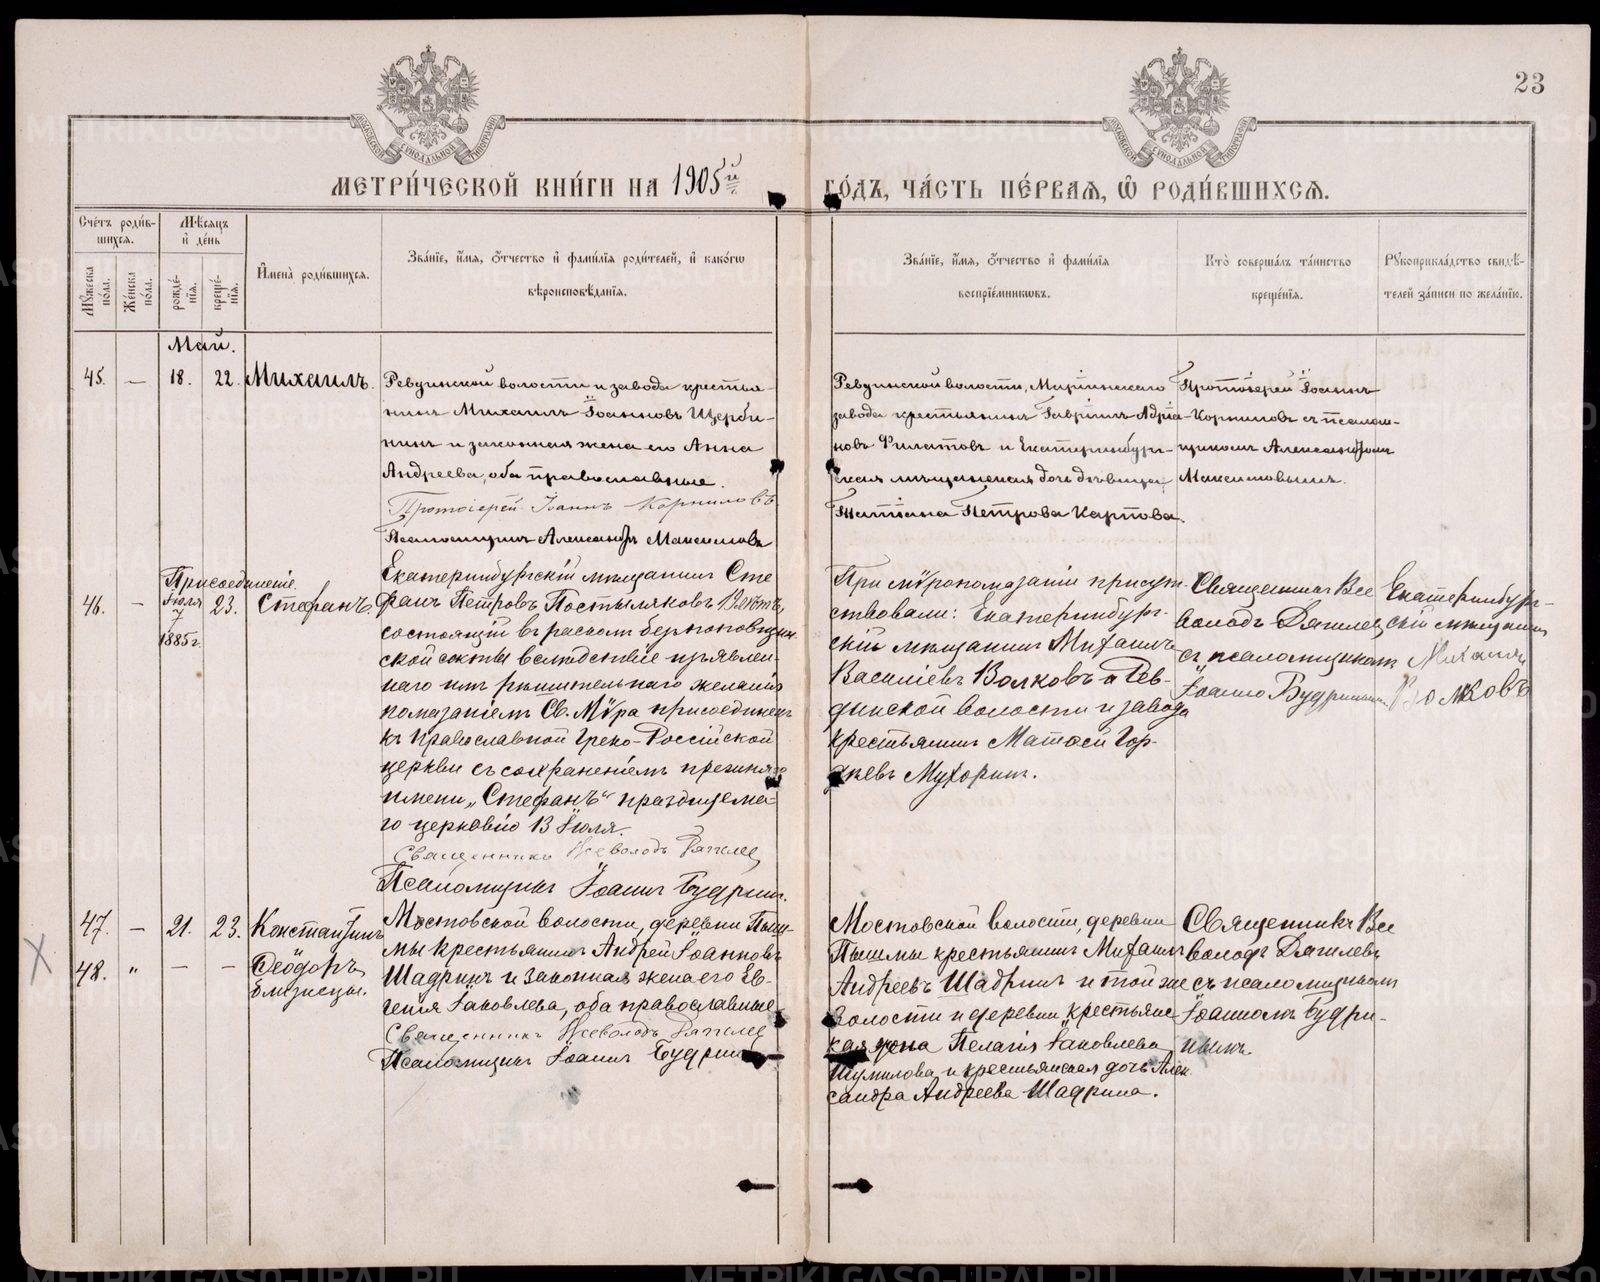 23
МЕТРИ́ЧЕСКОЙ КНИ́ГИ НА 1905й ГО́ДЪ, ЧА́СТЬ ПЕ́РВАЯ, Ѡ РОДИ́ВШИХСЯ.
Сче́тъ роди́вшихся.
Мѣ́сяцъ и҆ де́нь
И҆мена̀ роди́вшихся.
Зва́нїе, и҆́мя, ѻ҆́тчество и҆ фами́лїя роди́телей, и҆ како́гѡ
вѣроисповѣ́данїя.
Зва́нїе, и҆́мя, ѻ҆́тчество и҆ фами́лїя
воспрїе́мниковъ.
Кто̀ соверша́лъ та́инство
креще́нїя.
Рꙋкоприкла́дство свидѣ́-
телей за́писи по жела́нїю.
Мꙋ́жеска по́ла.
Же́нска по́ла.
рожде́-
нїя.
креще́-
нїя.
Май.
45. — 18. 22. Михаилъ.
Ревдинской волости и завода крестья-
нинъ Михаилъ Іоанновъ Щерби-
нинъ и законная жена его Анна
Андреева, оба православные.
Протоіерей Іоаннъ Корниловъ
Псаломщикъ Александръ Максимовъ
Ревдинской волости, Маріинскаго
завода крестьянинъ Гавріилъ Адріа-
новъ Филатовъ и Екатеринбург-
ская мѣщанская дочь дѣвица
Татіана Петрова Карпова.
Протоіерей Іоаннъ
Корниловъ съ псалом-
щикомъ Александромъ
Максимовымъ.
Присоединеніе
46. — Іюля 7 1885г. 23. Стефанъ.
Екатеринбургскій мѣщанинъ Сте
фанъ Петровъ Постыляковъ 19 лѣтъ,
состоящій въ расколѣ безпоповщин-
ской секты вслѣдствіе изъявлен-
наго имъ рѣшительнаго желанія
помазаніемъ Св. Мѵра присоединенъ
къ Православной Греко-Россійской
церкви съ сохраненіемъ прежняго
имени „Стефанъ" празднуема-
го церковію 13 Іюля.
Священникъ Всеволодъ Дягилев
Псаломщикъ Іоаннъ Будринъ.
При мѵропомазаніи присут-
ствовали: Екатеринбург-
скій мѣщанинъ Михаилъ
Василіевъ Волковъ и Рев-
динской волости и завода
крестьянинъ Матѳей Гор-
дѣевъ Мухоринъ.
Священникъ Все
володъ Дягилевъ
съ псаломщикомъ
Іоанно Будринымъ.
Екатеринбург-
скій мѣщанинъ
Михаилъ
Волковъ
47. — 21. 23. Константинъ
48. „ — — Ѳеодоръ
близнецы.
Мостовской волости, деревни Пыш-
мы крестьянинъ Андрей Іоанновъ
Шадринъ и законная жена его Ев-
генія Іаковлева, оба православные.
Священникъ Всеволодъ Дягилев
Псаломщикъ Іоаннъ Будринъ
Мостовской волости, деревни
Пышмы крестьянинъ Михаилъ
Андреевъ Шадринъ и той же
волости и деревни крестьянс
кая жена Пелагія Іаковлева
Шумилова и крестьянская дочь Алек
сандра Андреева Шадрина.
Священникъ Все
володъ Дягилевъ
съ псаломщикомъ
Іоанномъ Будри-
нымъ.